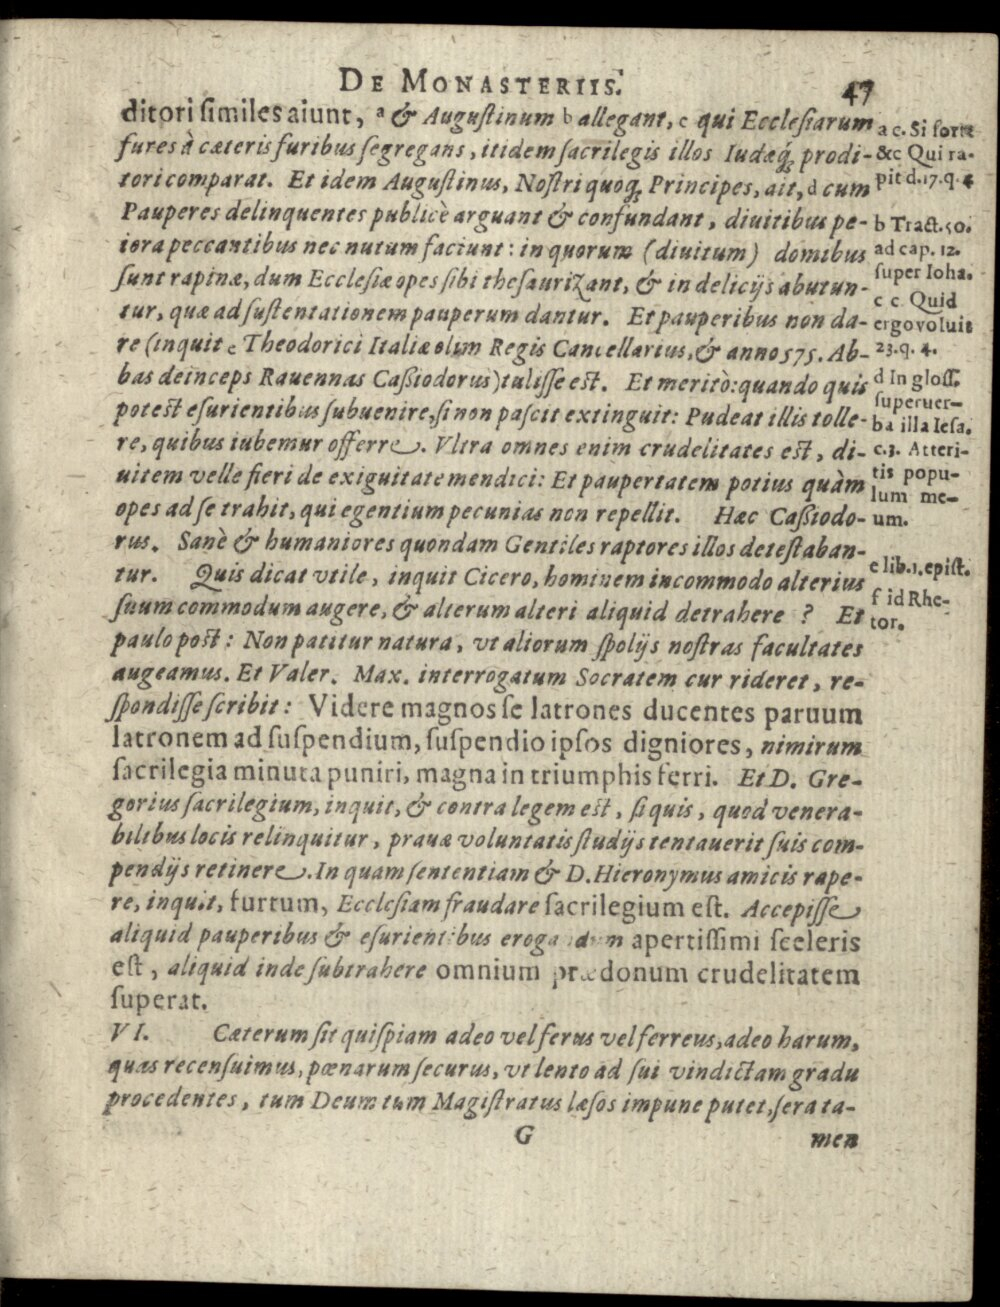 DE MONASTERIIS. 47
ditori similes aiunt, a & Augustinum b allegant, c qui Ecclesiarum
fures à cæteris furibus segregans, itidem sacrilegis illos Iudæq́; prodi-
tori comparat. Et idem Augustinus, Nostri quoq; Principes, ait, d cum
Pauperes delinquentes publicè arguant & confundant, diuitibus pe-
iora peccantibus nec nutum faciunt: in quorum (diuitum) domibus
sunt rapinæ, dum Ecclesiæ opes sibi thesaurizant, & in delicijs abutun-
tur, quæ ad sustentationem pauperum dantur. Et pauperibus non da-
re (inquit e Theodorici Italiæ olim Regis Cancellarius, & anno 575. Ab-
bas deinceps Rauennas Caßiodorus) tulisse est. Et meritò: quando quis
potest esurientibus subuenire, si non pascit extinguit: Pudeat illis tolle-
re, quibus iubemur offerre. Vltra omnes enim crudelitates est, di-
uitem velle fieri de exiguitate mendici: Et paupertatem potius quàm
opes ad se trahit, qui egentium pecunias non repellit. Hæc Caßiodo-
rus. Sanè & humaniores quondam Gentiles raptores illos detestaban-
tur. Quis dicat vtile, inquit Cicero, hominem incommodo alterius
suum commodum augere, & alterum alteri aliquid detrahere ? Et
paulo post: Non patitur natura, vt aliorum spolijs nostras facultates
augeamus. Et Valer. Max. interrogatum Socratem cur rideret, re-
spondisse scribit: Videre magnos se latrones ducentes paruum
latronem ad suspendium, suspendio ipsos digniores, nimirum
sacrilegia minuta puniri, magna in triumphis ferri. Et D. Gre-
gorius sacrilegium, inquit, & contra legem est, si quis, quod venera-
bilibus locis relinquitur, prauæ voluntatis studijs tentauerit suis com-
pendijs retinere. In quam sententiam & D. Hieronymus amicis rape-
re, inquit, furtum, Ecclesiam fraudare sacrilegium est. Accepisse
aliquid pauperibus & esurientibus erogandum apertissimi sceleris
est, aliquid inde subtrahere omnium prædonum crudelitatem
superat.
VI. Cæterum sit quispiam adeo vel ferus vel ferreus, adeo harum,
quas recensuimus, pœnarum securus, vt lento ad sui vindictam gradu
procedentes, tum Deum tum Magistratus læsos impune putet, sera ta-
G men
a c. Si forte
&c Qui ra-
pit d. 17. q. 4
b Tract. 50.
ad cap. 12.
super Ioha.
c c. Quid
ergo voluit
23. q. 4.
d In gloss.
super ver-
ba illa Iesa.
c. 3. Atteri-
tis popu-
lum me-
um.
e lib. 1. epist.
f id Rhe-
tor.